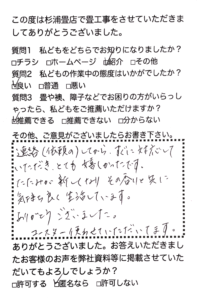 この度は杉浦畳店で畳工事をさせていただきま
してありがとうございました。
質問1 私どもをどちらでお知りになりましたか?
□チラシ □ホームページ □紹介 □その他
質問2 私どもの作業中の態度はいかがでしたか?
□良い □普通 □悪い
質問3 畳や襖、障子などでお困りの方がいらっし
ゃったら、私どもをご推薦いただけますか?
□推薦できる □推薦できない □分からない
その他、ご意見がございましたらお書き下さい。
連絡(依頼の)してから、すぐに対応して
いただき、とても嬉しかったです。
たたみが新しくなり その香りと共に
気持ち良く生活しています。
ありがとうございました。
コースター使わせていただいてます。
ありがとうございました。お答えいただきまし
たお客様のお声を弊社資料等に掲載させていた
だいてもよろしでしょうか?
□許可する □匿名なら □許可しない